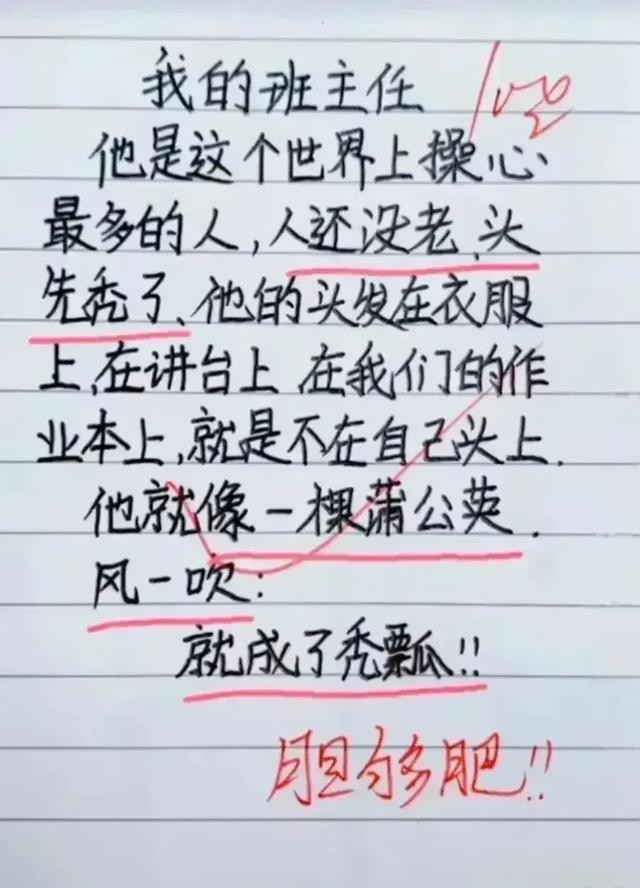 我的班主任
100
他是这个世界上操心
最多的人,人还没老,头
先秃了、他的头发在衣服
上,在讲台上 在我们的作
业本上,就是不在自己头上.
他就像一棵蒲公英.
风一吹:
就成了秃瓢!!
胆够肥!!